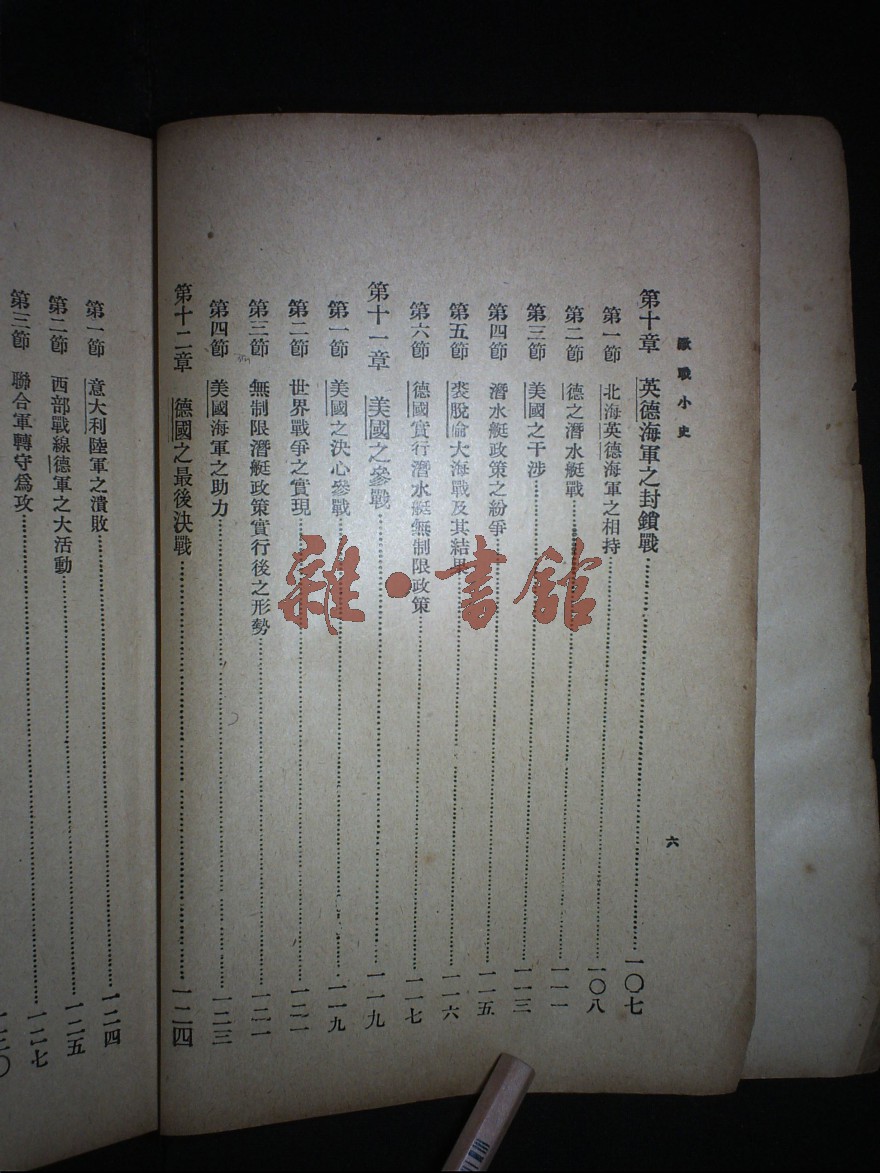 歐戰小史
六
第十章 英德海軍之封鎖戰……一〇七
第一節 北海英德海軍之相持……一〇八
第二節 德之潛水艇戰……一一一
第三節 美國之干涉……一一三
第四節 潛水艇政策之紛爭……一一五
第五節 裘脫倫大海戰及其結果……一一六
第六節 德國實行潛水艇無制限政策……一一七
第十一章 美國之參戰……一一九
第一節 美國之決心參戰……一一九
第二節 世界戰爭之實現……一二一
第三節 無制限潛艇政策實行後之形勢……一二一
第四節 美國海軍之助力……一二三
第十二章 德國之最後決戰……一二四
第一節 意大利陸軍之潰敗……一二四
第二節 西部戰線德軍之大活動……一二五
第三節 聯合軍轉守爲攻……一二七
一三〇
雜·書館